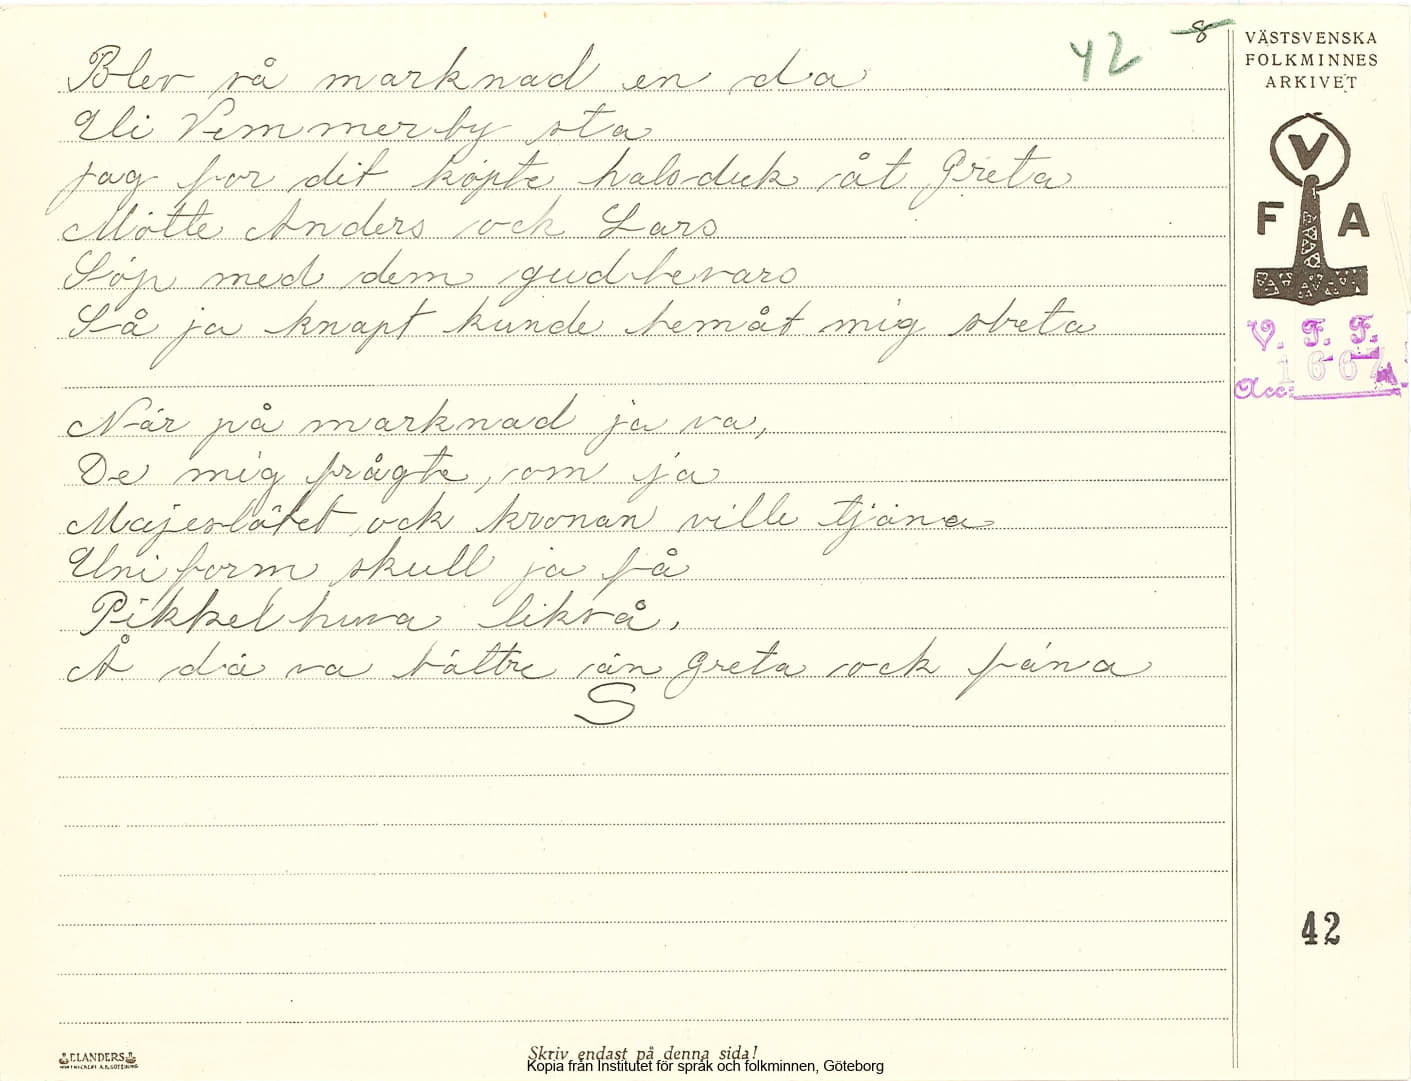 42 8
Blev så marknad en da
Uti Vemmerby sta
jag for dit köpte halsduk åt Greta
Mötte Anders ock Lars
Söp med dem gudbevars
Så ja knapt kunde hemåt mig streta
När på marknad ja va,
De mig frågte, om ja
Majestätet ock kronan ville tjäna
Uniform skull ja få
Pikkelhuva likså.
Å dä va bättre än Greta ock fäna
S
VÄSTSVENSKA
FOLKMINNES
ARKIVET
V
F A
V. F. F.
1667
Acc:
42
ELANDERS
Skriv endast på denna sida!
Kopia från Institutet för språk och folkminnen, Göteborg